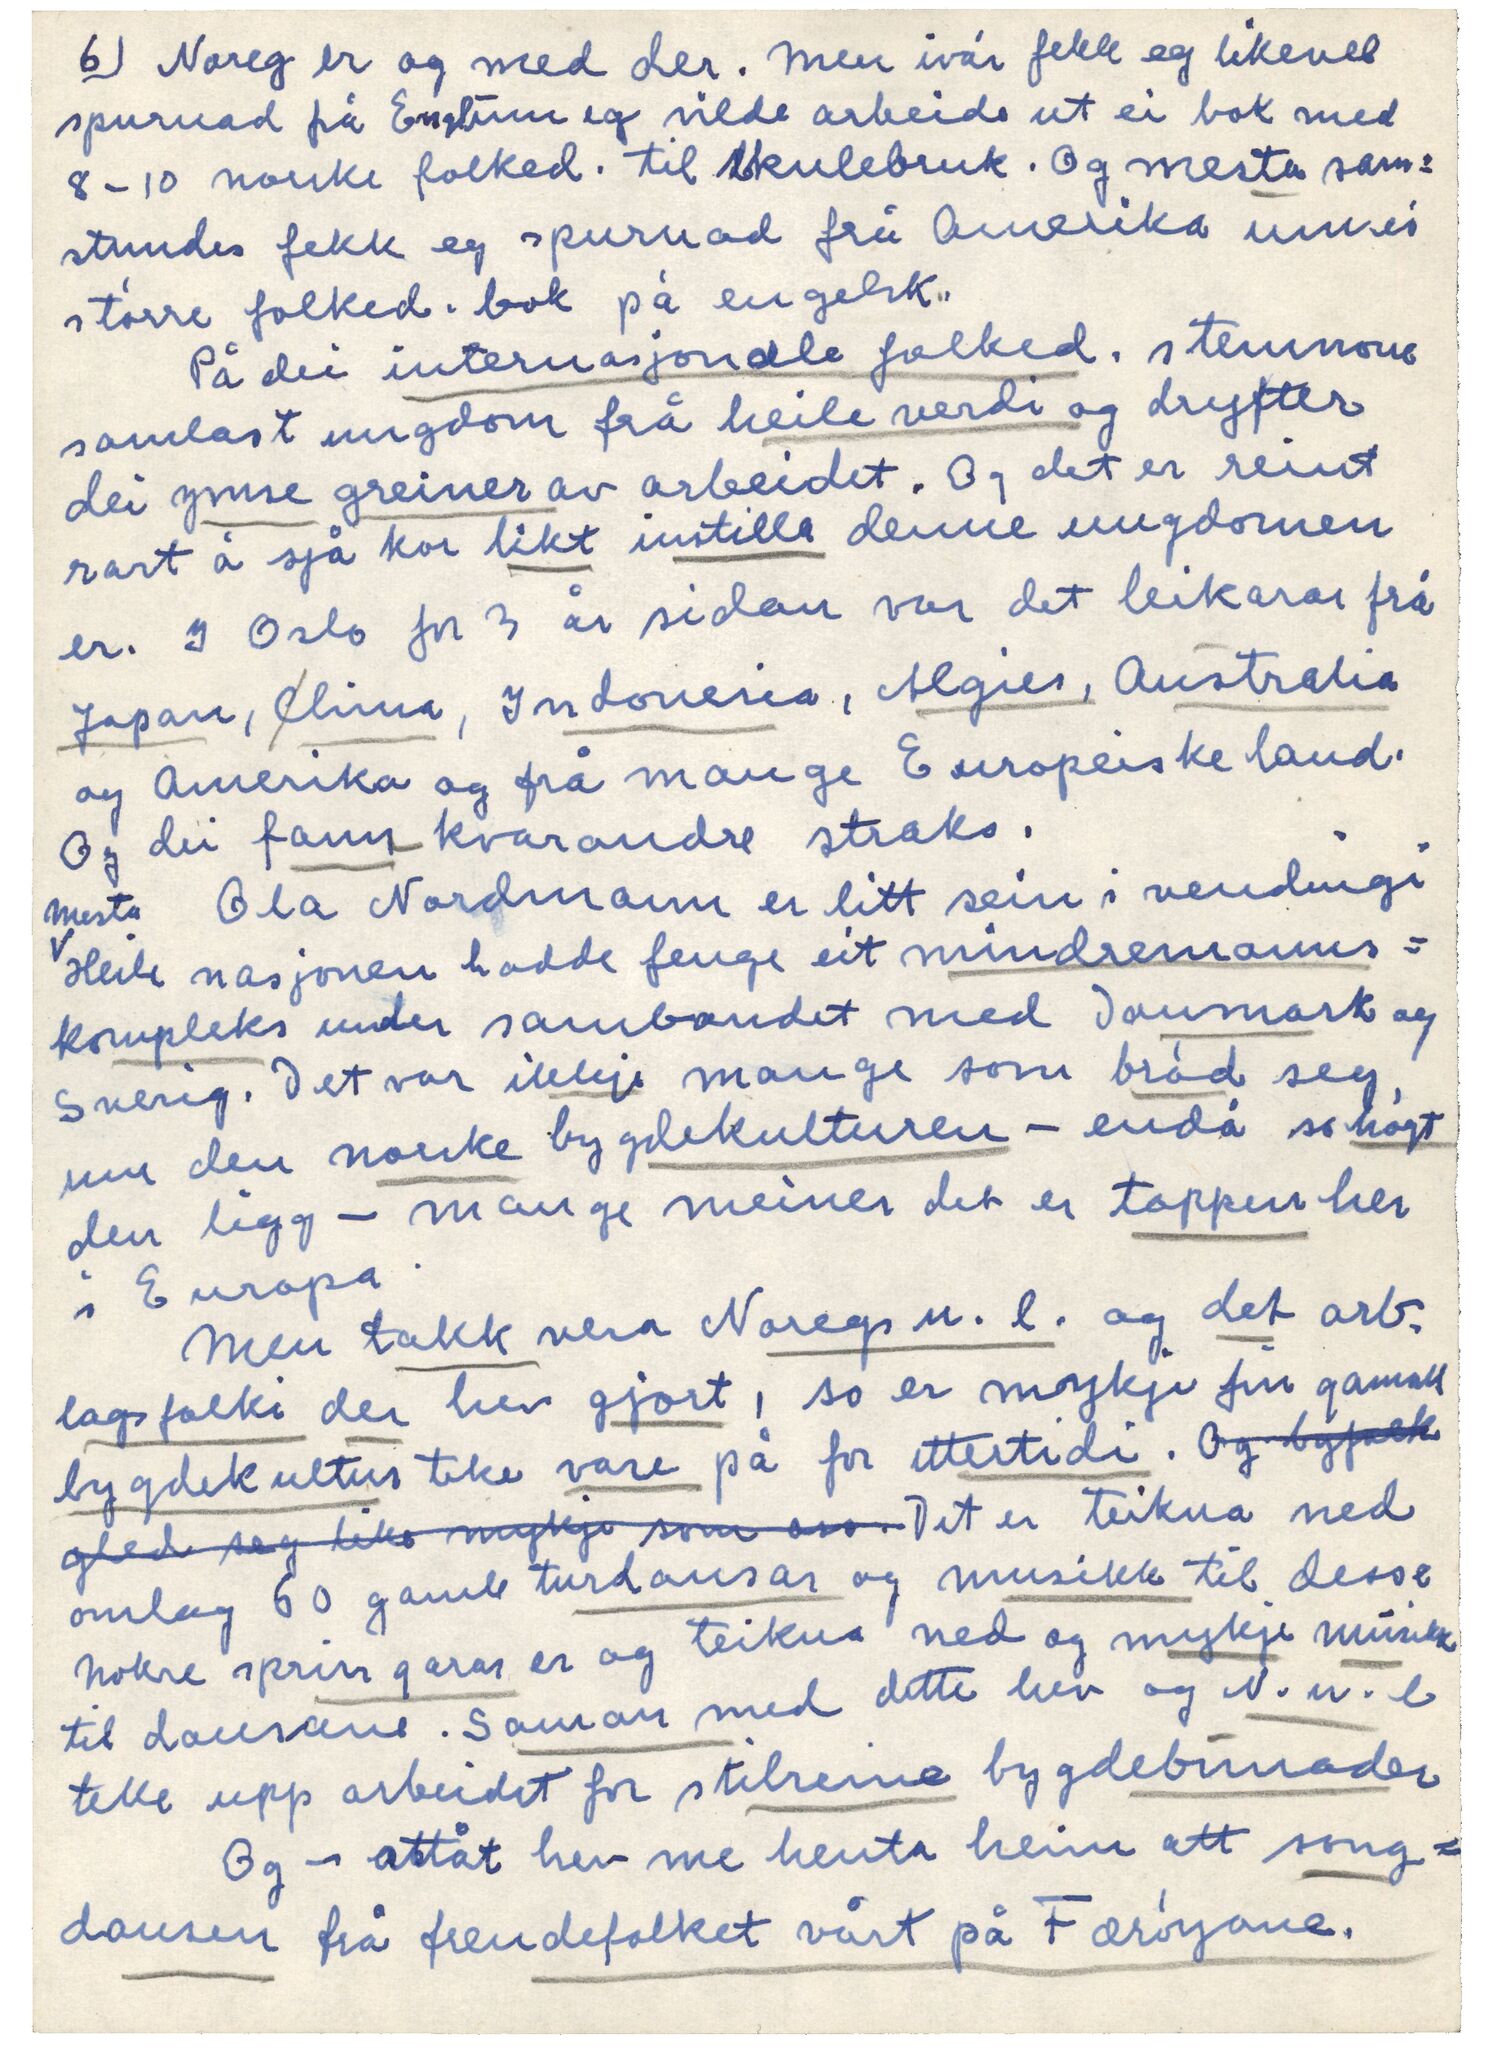 6) Noreg er og med der. Men ivår fekk eg likevel
spurnad frå Engl. um eg vilde arbeide ut ei bok med
8-10 norske folked. til skulebruk. Og mesta sam=
stundes fekk eg spurnad frå Amerika um ei
større folked. bok på engelsk.
På dei internasjonale folked. stemnone
samlast ungdom frå heile verdi og dryfter
dei ymse greiner av arbeidet. Og det er reint
rart å sjå kor likt instilla denne ungdomen
er. I Oslo for 3 år sidan var det leikarar frå
Japan, China, Indonesia, Algier, Australia
og Amerika og frå mange Europeiske land.
Og dei fann kvarandre straks.
Ola Nordmann er litt sein i vendingi
mesta
Heile nasjonen hadde fenge eit mindremanns=
kompleks under sambandet med Danmark og
Sverig. Det var ikkje mange som brød seg
um den norske bygdekulturen - endå so høgt
den ligg - mange meiner det er toppen her
i Europa.
Men takk vera Noregs u. l. og det arb.
lagsfolki der hev gjort, so er mykje fin gamall
bygdekultur teke vare på for ettertidi. Og byfolk
gled seg like mykje som oss. Det er teikna ned
omlag 60 gamle turdansar og musikk til desse
Nokre springarar er og teikna ned og mykje musikk
til dansane. Saman med dette hev og N.u.l
teke upp arbeidet for stilreine bygdebunader
Og - attåt hev me henta heim att song=
dansen frå frendefolket vårt på Færøyane.